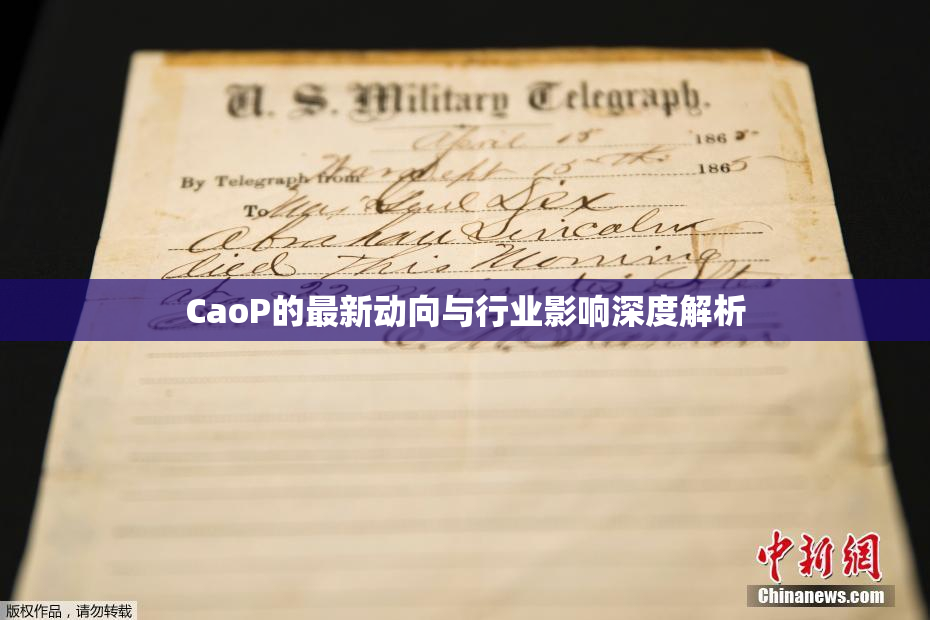 U. S. Military Telegraph.
April 15 1865
By Telegraph from War Dept 15th 1865
To Maj Genl Dix
Abraham Lincoln
died This Morning
at 22 minutes after
CaoP的最新动向与行业影响深度解析
E. M. Stanton
中新网
Chinanews.com
版权作品，请勿转载